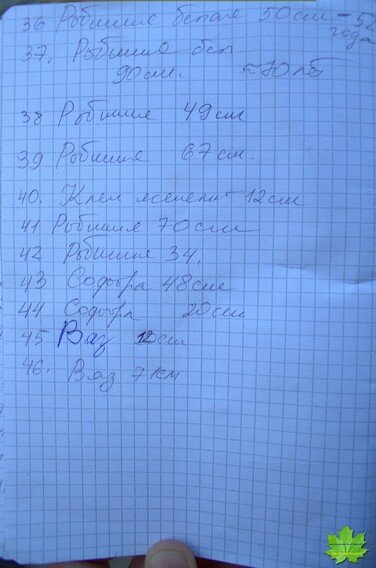 36 Робиния белая 50см - 52
года
37. Робиния бел
90см. ≈70 лет
38 Робиния 49см
39 Робиния 67см.
40. Клен ясенелит 12см
41 Робиния 70см
42 Робиния 34.
43 Софора 48см
44 Софора 20см
45 Вяз см
46. Вяз 7 км